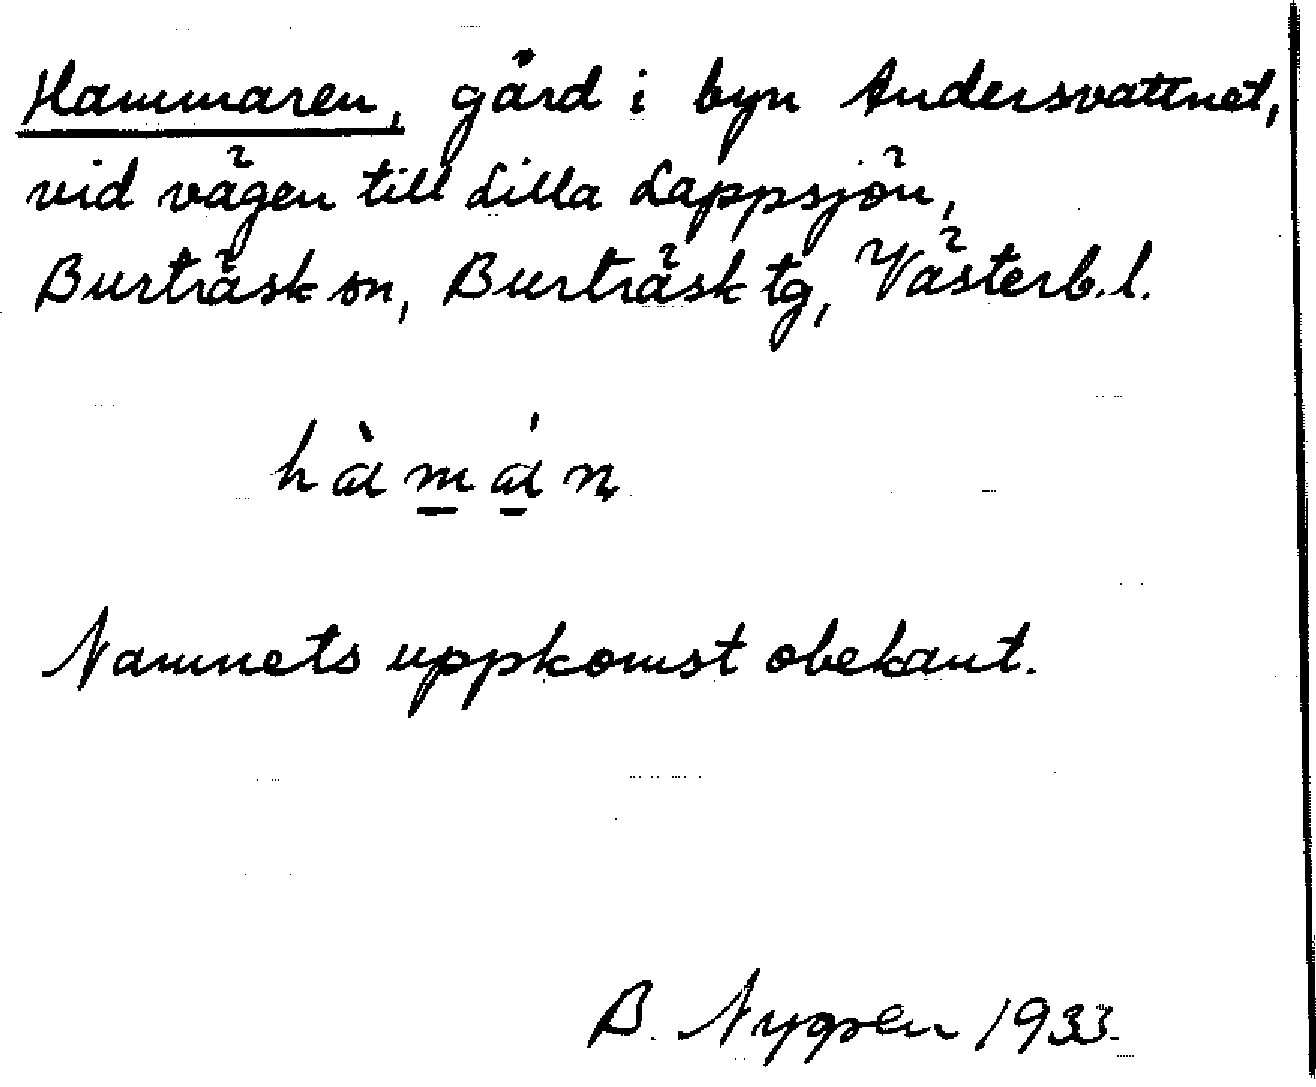 Hammaren, gård i byn Andersvattnet,
vid vägen till Lilla Lappsjön,
Burträsk sn, Burträsk tg, Västerb. l.
hàmán
Namnets uppkomst obekant.
B. Nygren 1933.